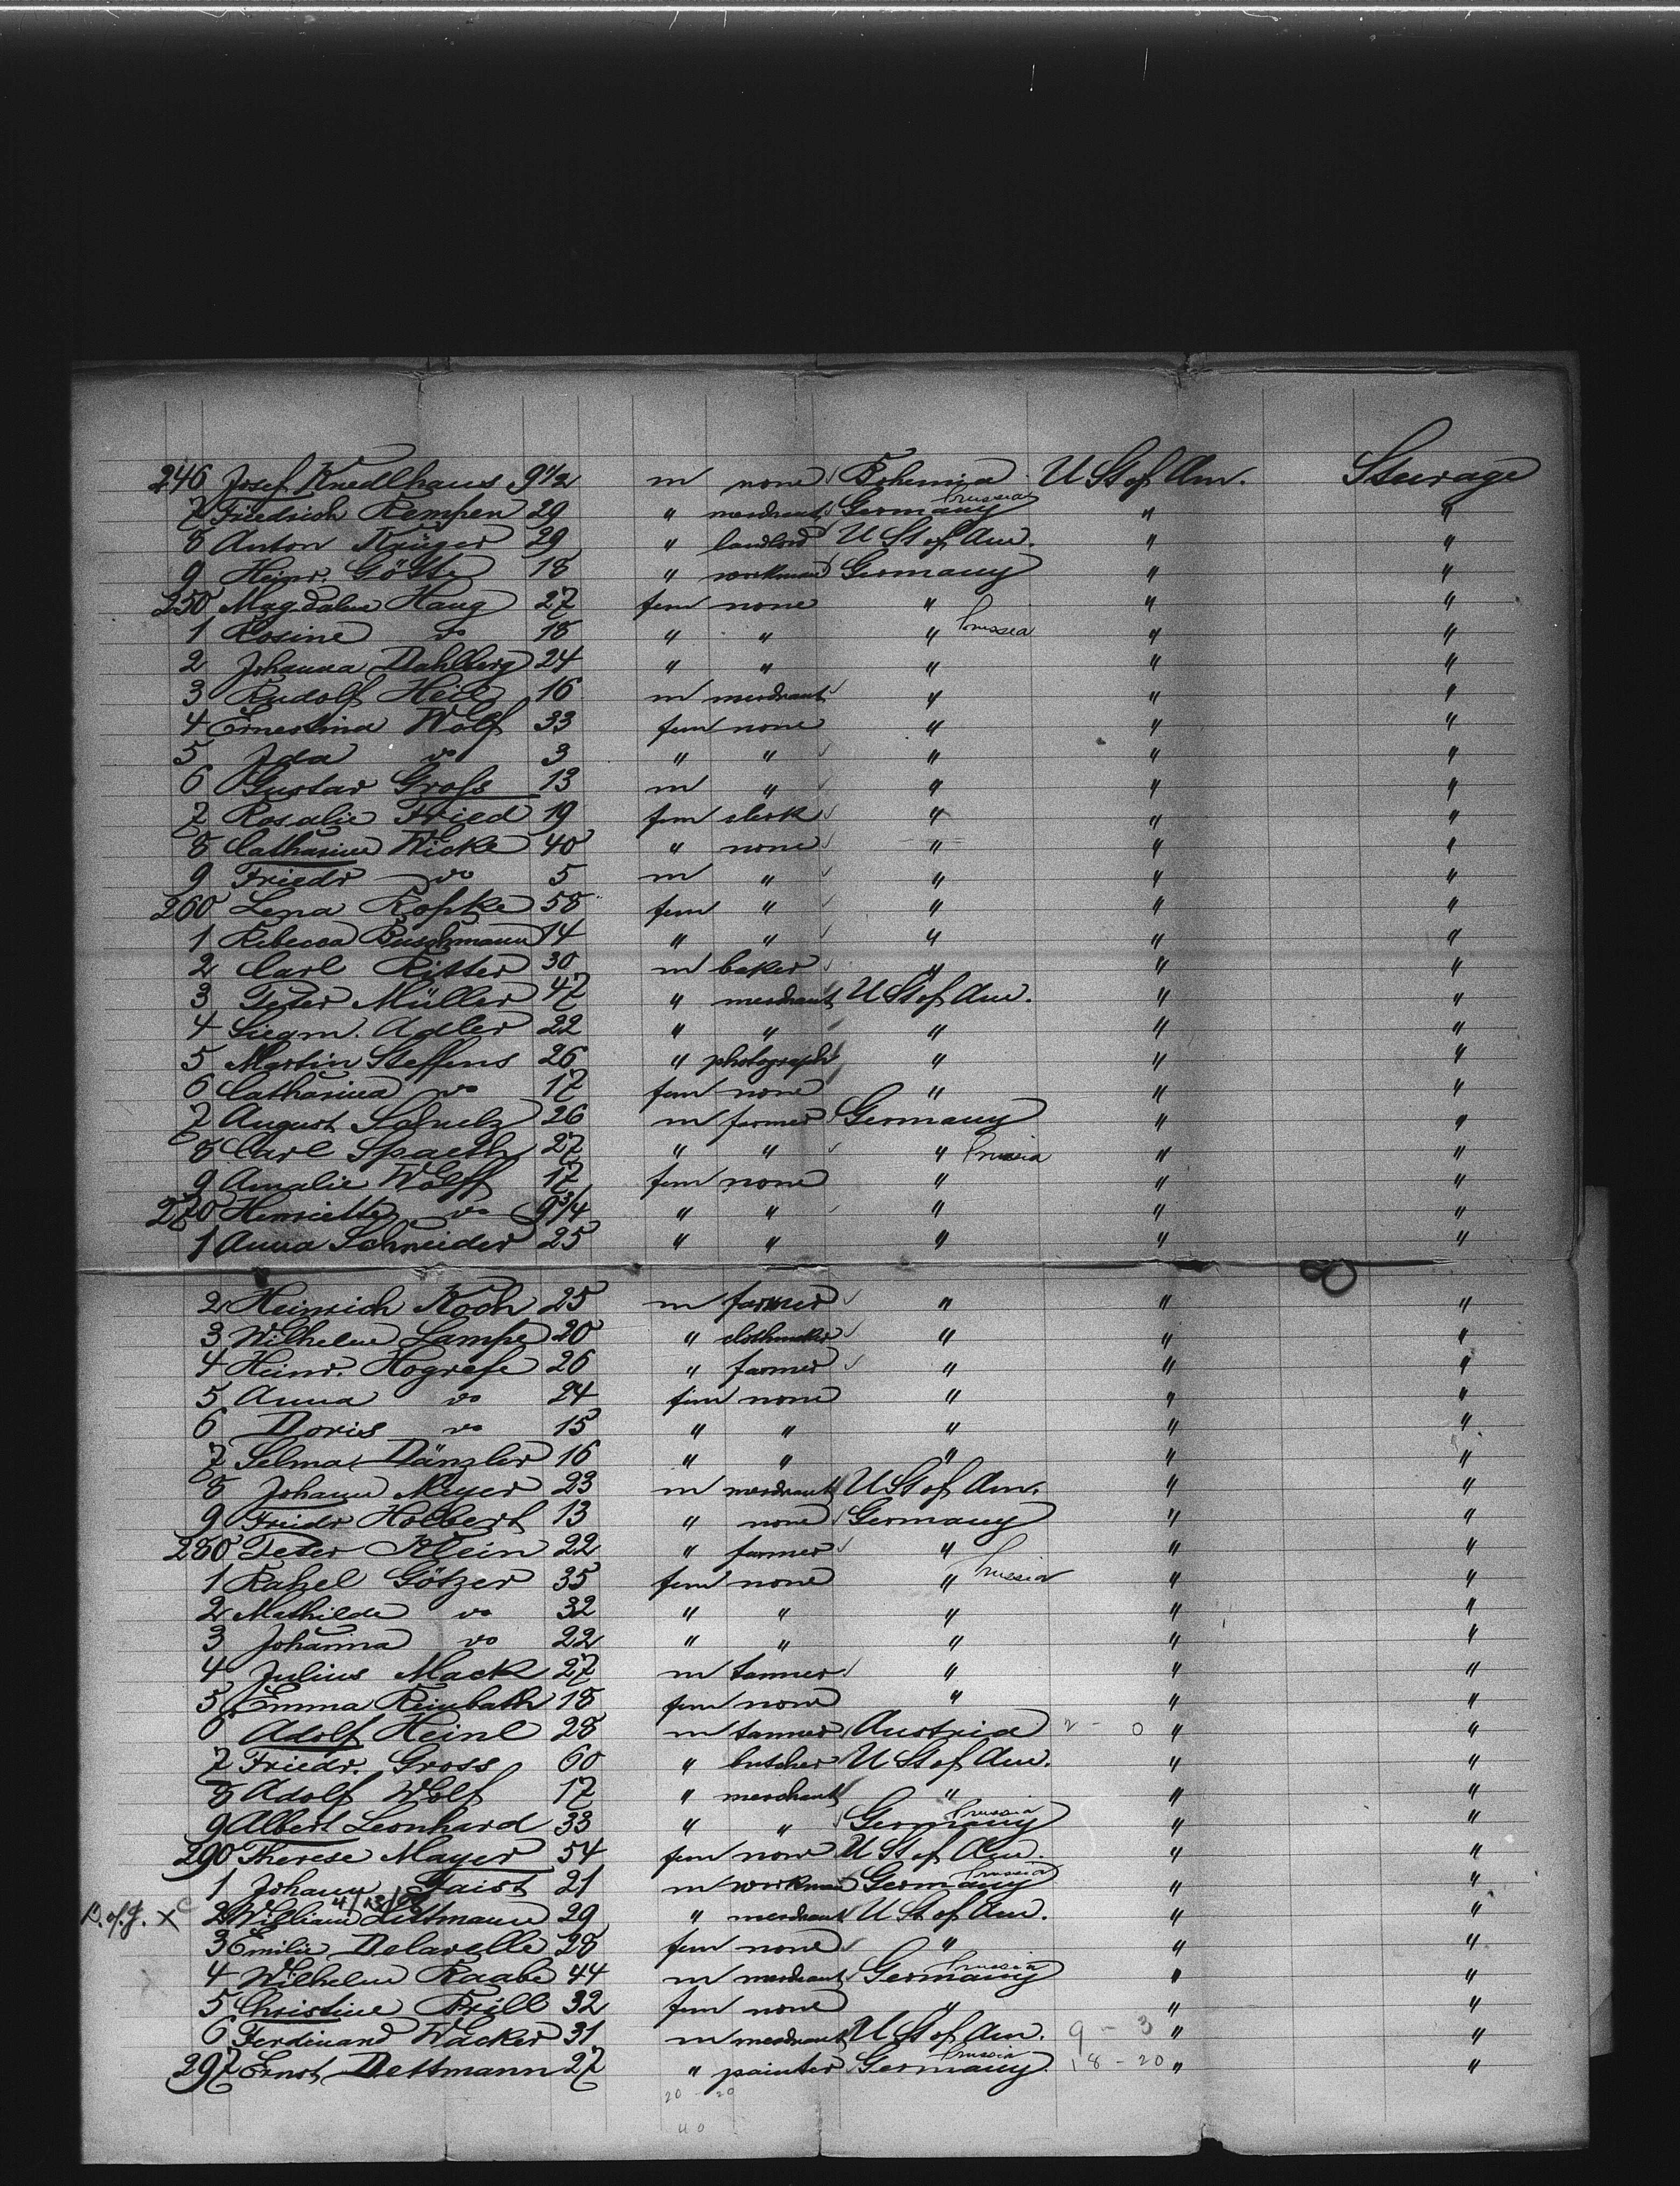 246 Josef Knedlhans 9 1/2 m none Bohemia U St of Am. Steerage
7 Friedrich Kempen 29 " merchant Germany Prussia " "
8 Anton Krüger 29 " landlord U St of Am. " "
9 Heinr. Götte 18 " workman Germany " "
250 Magdalene Haug 27 fem none " " "
1 Rosine do 18 " " " Prussia " "
2 Johanna Dahlberg 24 " " " " "
3 Rudolf Heil 16 m merchant " " "
4 Ernestina Wolf 33 fem none " " "
5 Ida do 3 " " " " "
6 Gustav Groß 13 m " " " "
7 Rosalie Fried 19 fem clerk " " "
8 Catharine Wicke 40 " none " " "
9 Friedr do 5 m " " " "
260 Lena Kopke 58 fem " " " "
1 Rebecca Buschmann 14 " " " " "
2 Carl Ritter 30 m baker " " "
3 Peter Müller 47 " merchant U St of Am. " "
4 Siegm. Adler 22 " " " " "
5 Martin Steffens 26 " photograph " " "
6 Catharina do 17 fem none " " "
7 August Schulz 26 m farmer Germany " "
8 Carl Spaeth 27 " " " Prussia " "
9 Amalie Wolff 17 fem none " " "
270 Henriette do 9 3/4 " " " " "
1 Anna Schneider 25 " " " " "
8
2 Heinrich Koch 25 m farmer " " "
3 Wilhelm Lampe 20 " clothmaker " " "
4 Heinr. Hogrefe 26 " farmer " " "
5 Anna do 24 fem none " " "
6 Doris do 15 " " " " "
7 Selma Dänzler 16 " " " " "
8 Johann Meyer 23 m merchant U St of Am. " "
9 Friedr Holbert 13 " none Germany " "
280 Peter Klein 22 " farmer " " "
1 Rahel Götzer 35 fem none " Prussia " "
2 Mathilde do 32 " " " " "
3 Johanna do 22 " " " " "
4 Julius Mack 27 m tanner " " "
5 Emma Reinbath 18 fem none " " "
6 Adolf Heinl 28 m tanner Austria 2 - 0 " "
7 Friedr. Gross 60 " butcher U St of Am. " "
8 Adolf Wolf 17 " merchant " " "
9 Albert Leonhard 33 " " Germany Prussia " "
290 Therese Mayer 54 fem none U St of Am. " "
1 Johann Faist 21 m workman Germany Prussia " "
X c 2 William Littmann 29 " merchant U St of Am. " "
3 Emilie Delavelle 28 fem none " " "
4 Wilhelm Raabe 44 m merchant Germany Prussia " "
5 Christine Brill 32 fem none " " "
6 Ferdinand Wacker 31 m merchant U St of Am. 9 - 3 " "
297 Ernst Dettmann 27 " painter Germany. Prussia 18 - 20 " "
20 - 20
40